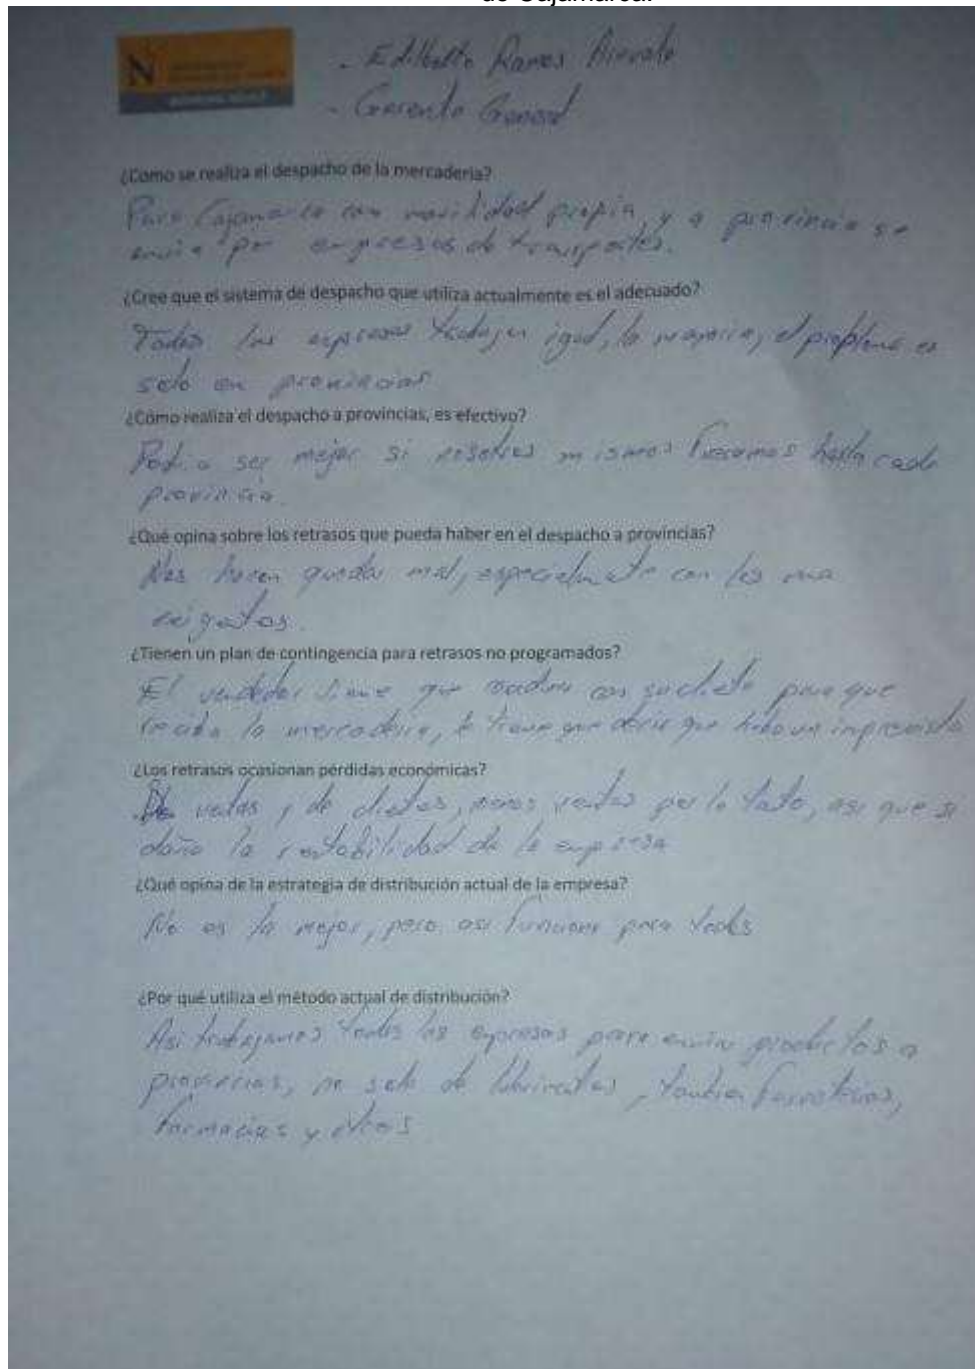 de Cajamarca.
N
- Edilberto Ramos Arevalo
- Gerente General
¿Como se realiza el despacho de la mercadería?
Para Cajamarca con movilidad propia, y a provincia se
envia por empresas de transportes.
¿Cree que el sistema de despacho que utiliza actualmente es el adecuado?
Todas las empresas trabajan igual, la mayoria, el problema es
solo en provincias
¿Cómo realiza el despacho a provincias, es efectivo?
Podria ser mejor si nosotros mismos fueramos hasta cada
provincia.
¿Qué opina sobre los retrasos que pueda haber en el despacho a provincias?
Nos hacen quedar mal, especialmente con los mas
exigentes.
¿Tienen un plan de contingencia para retrasos no programados?
El vendedor tiene que con su cliente para que
reciba la mercaderia, le tiene que decir que hubo un imprevisto
¿Los retrasos ocasionan pérdidas económicas?
De ventas y de clientes, menos ventas por lo tanto, asi que si
daña la rentabilidad de la empresa
¿Qué opina de la estrategia de distribución actual de la empresa?
No es la mejor, pero asi funciona para todos
¿Por qué utiliza el método actual de distribución?
Asi trabajamos todas las empresas para enviar productos a
provincias, no solo de lubricantes, tambien ferreterias,
farmacias y otros